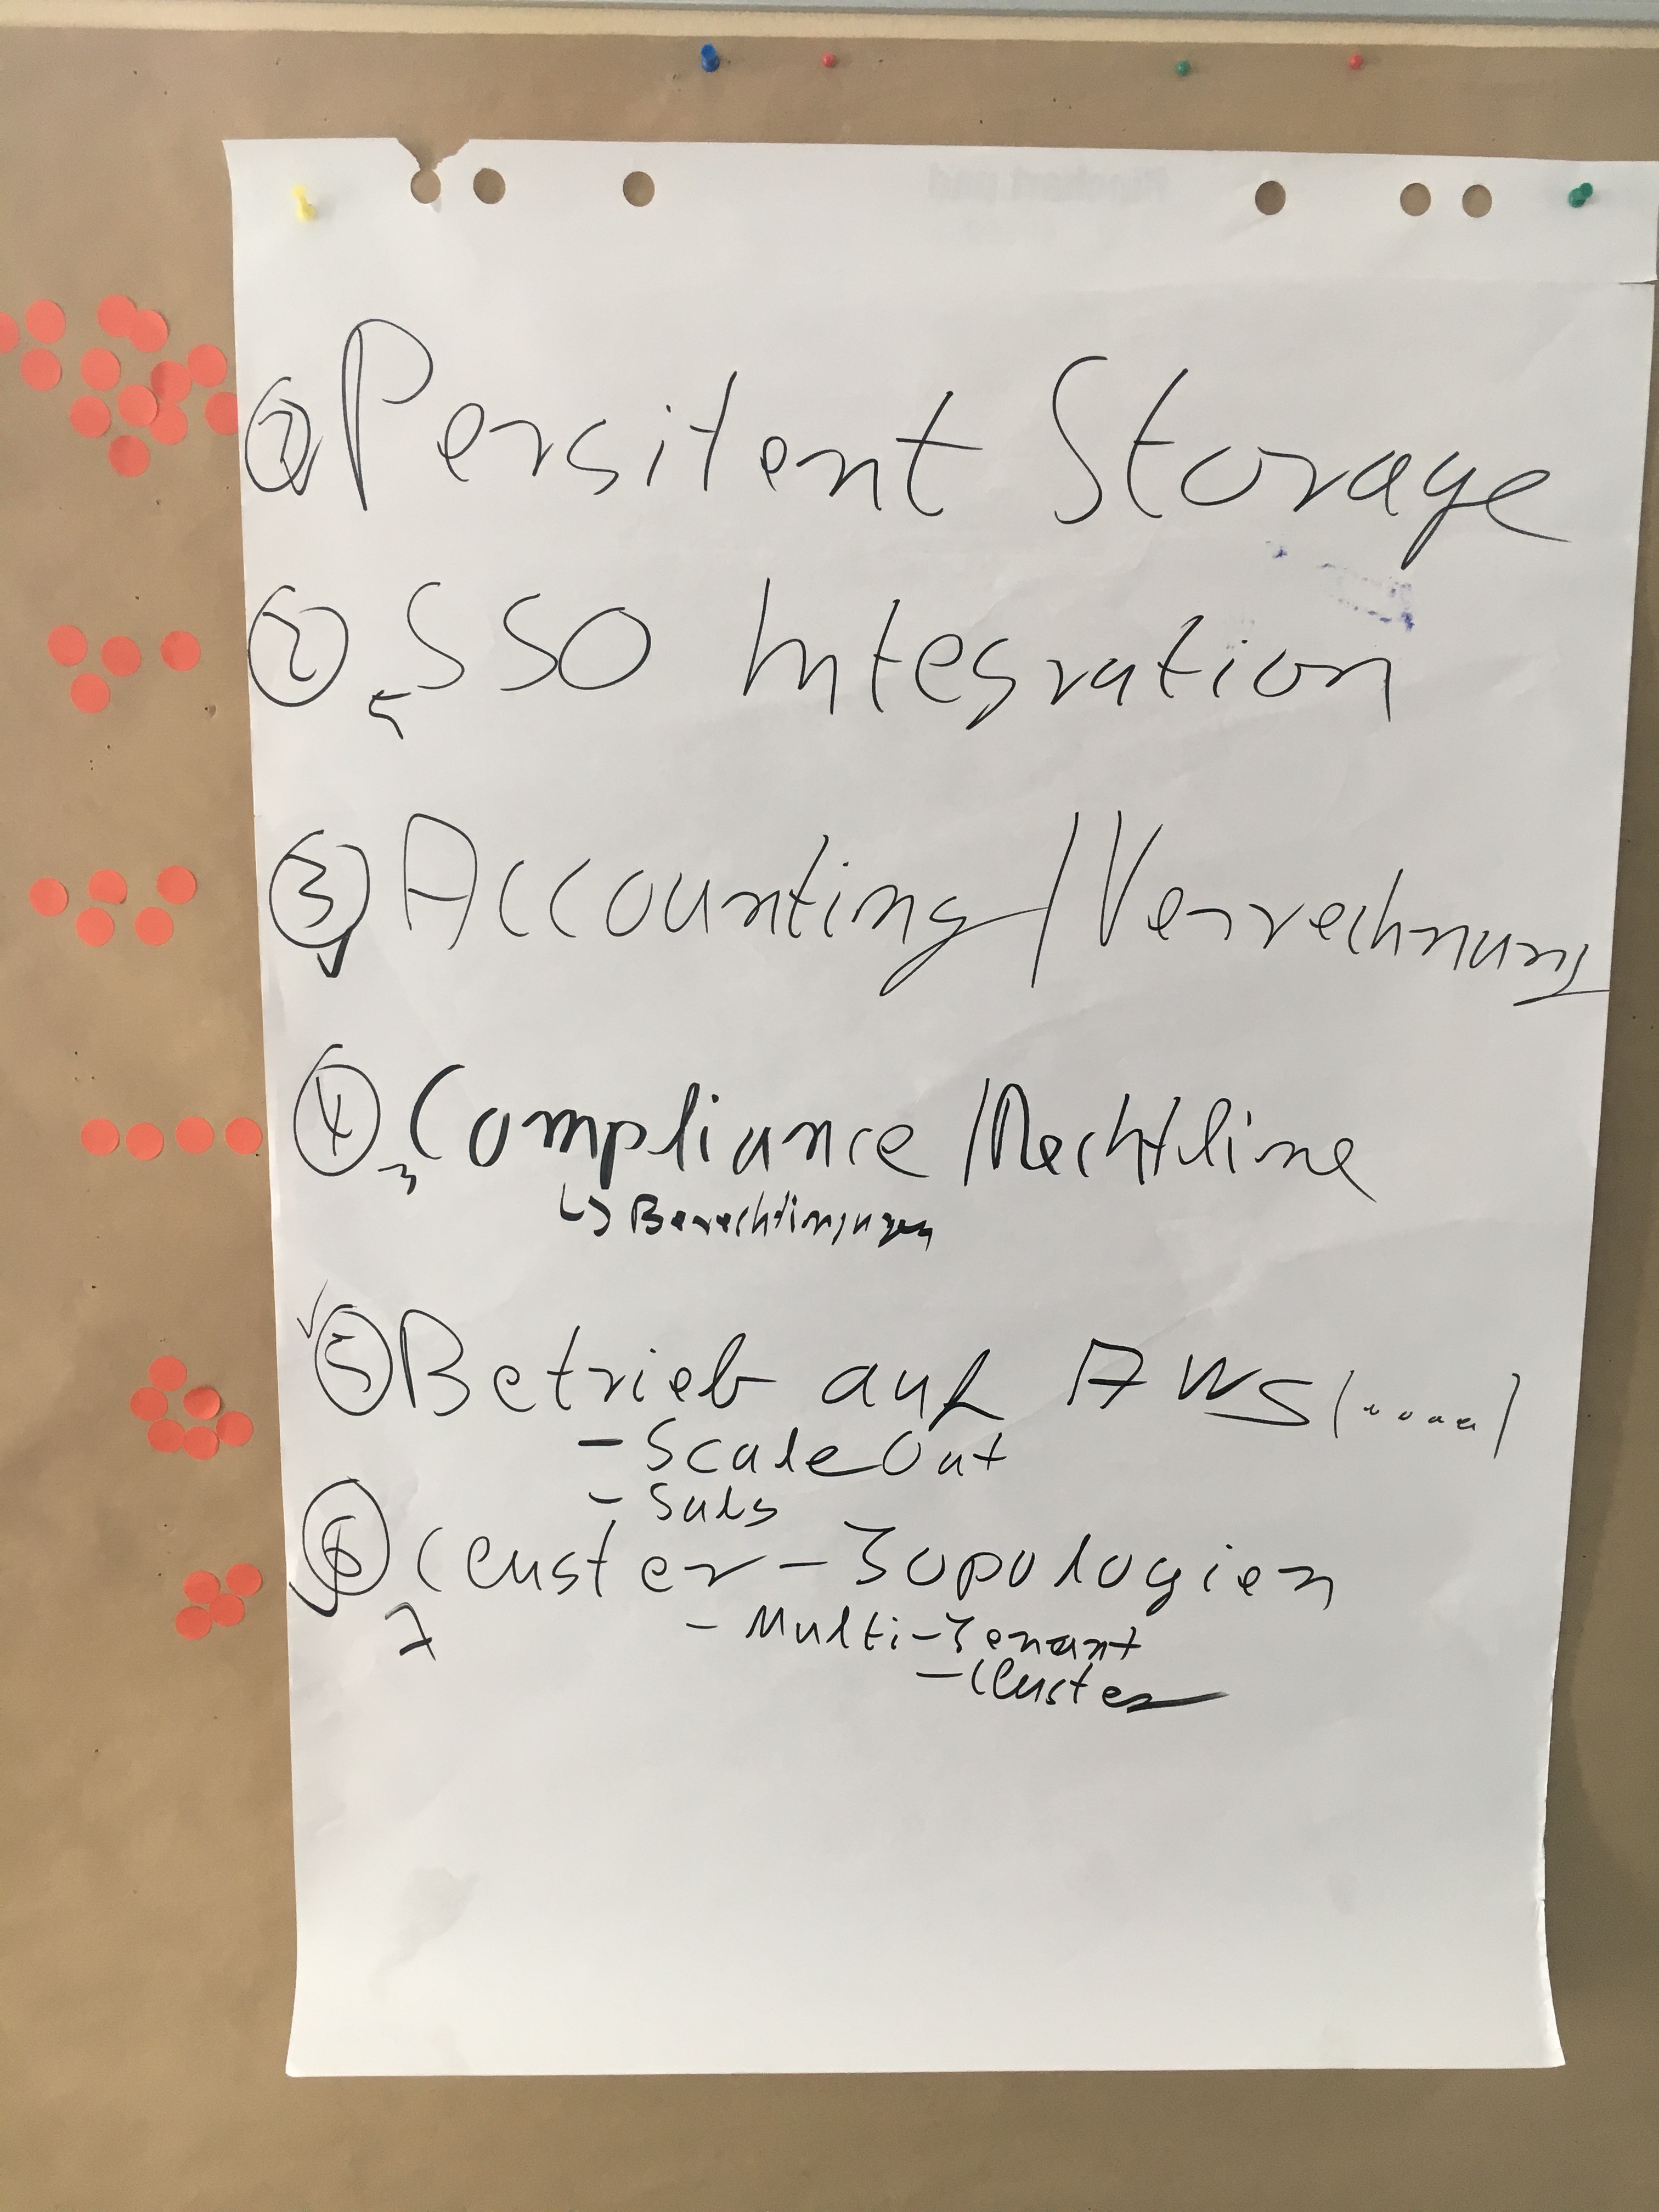 ① Persitent Storage
② SSO Integration
5
③ Accounting/Verrechnung
④ Compliance/
3
↳ Berechtingungen
⑤ Betrieb auf AWS(.....)
- Scale Out
⑥ Cluster-Topologien
7
- Multi-Tenant
- Cluster